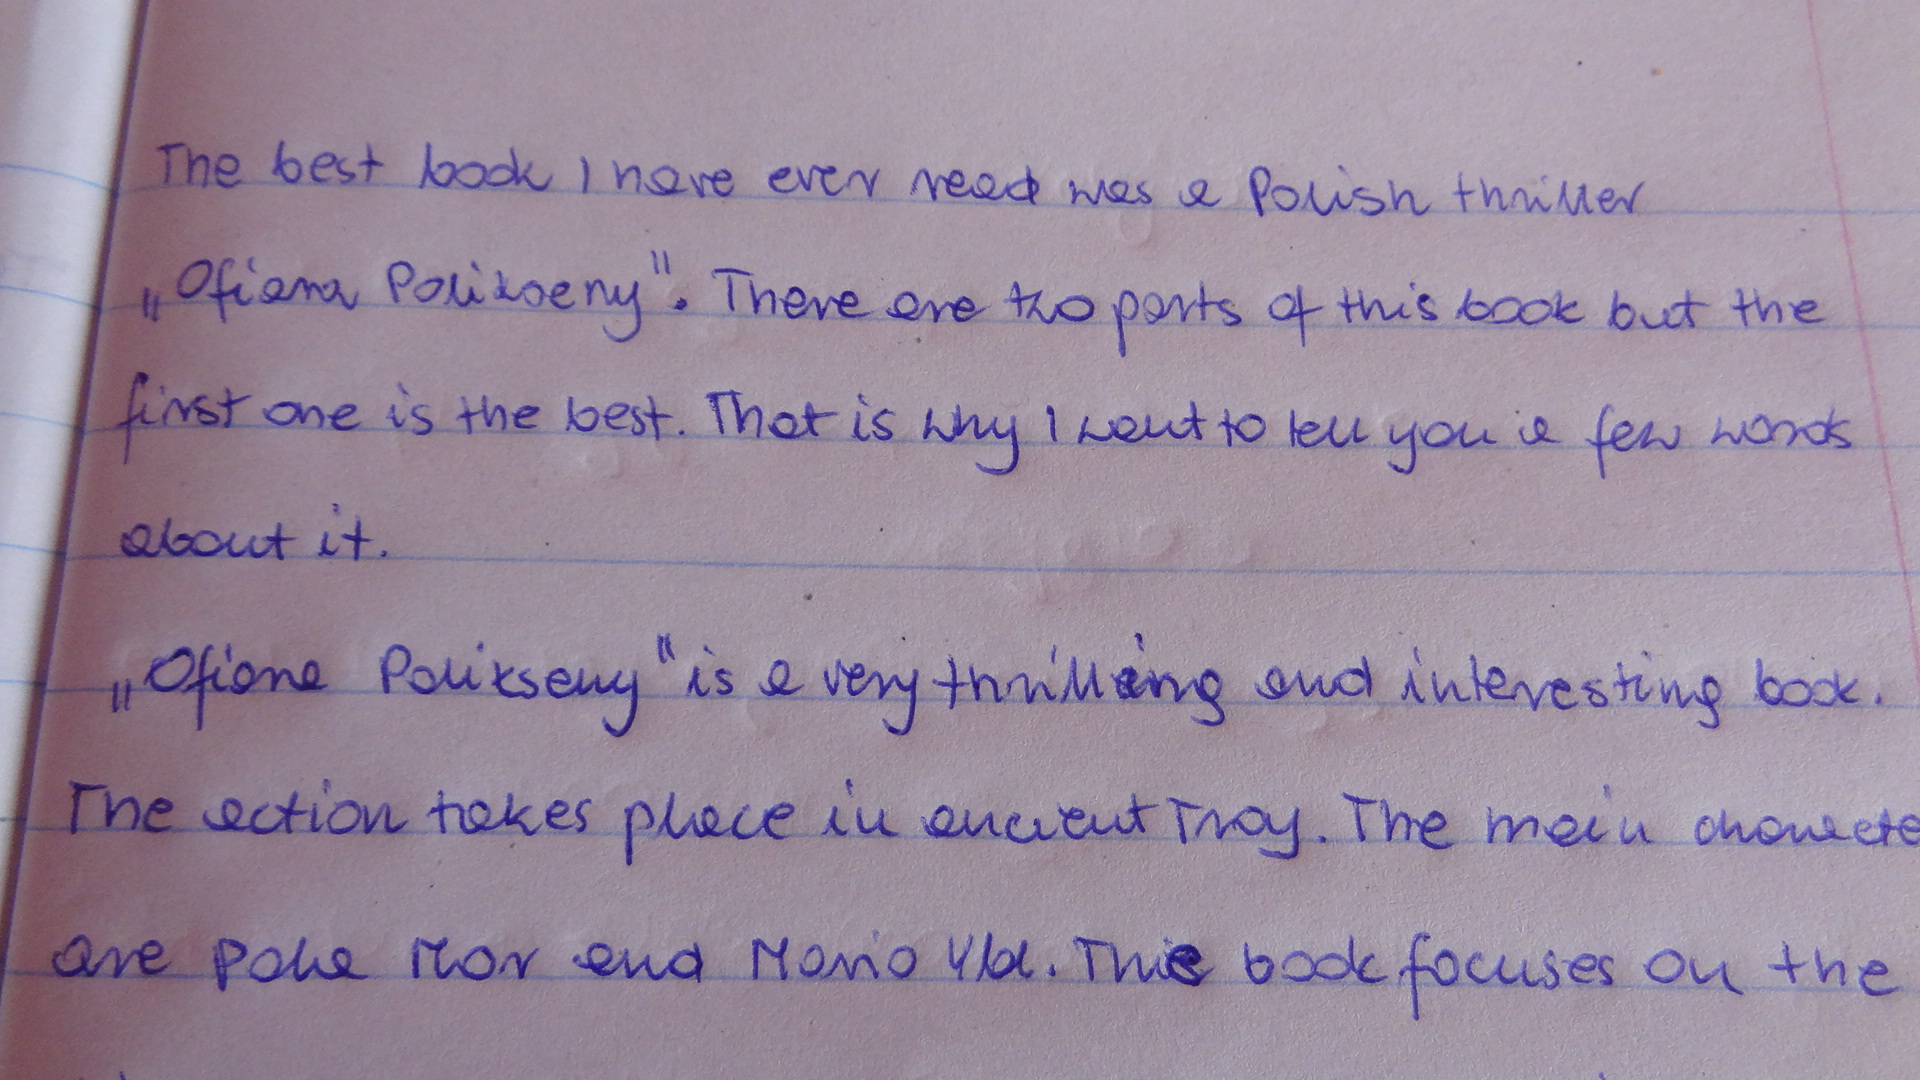 The best book I have ever read was a Polish thriller
„Ofiara Polikseny". There are two parts of this book but the
first one is the best. That is why I want to tell you a few words
about it.
„Ofiara Polikseny" is a very thrilling and interesting book.
The action takes place in ancient Troy. The main characte
are Mor and Mario Ybl. This book focuses on the